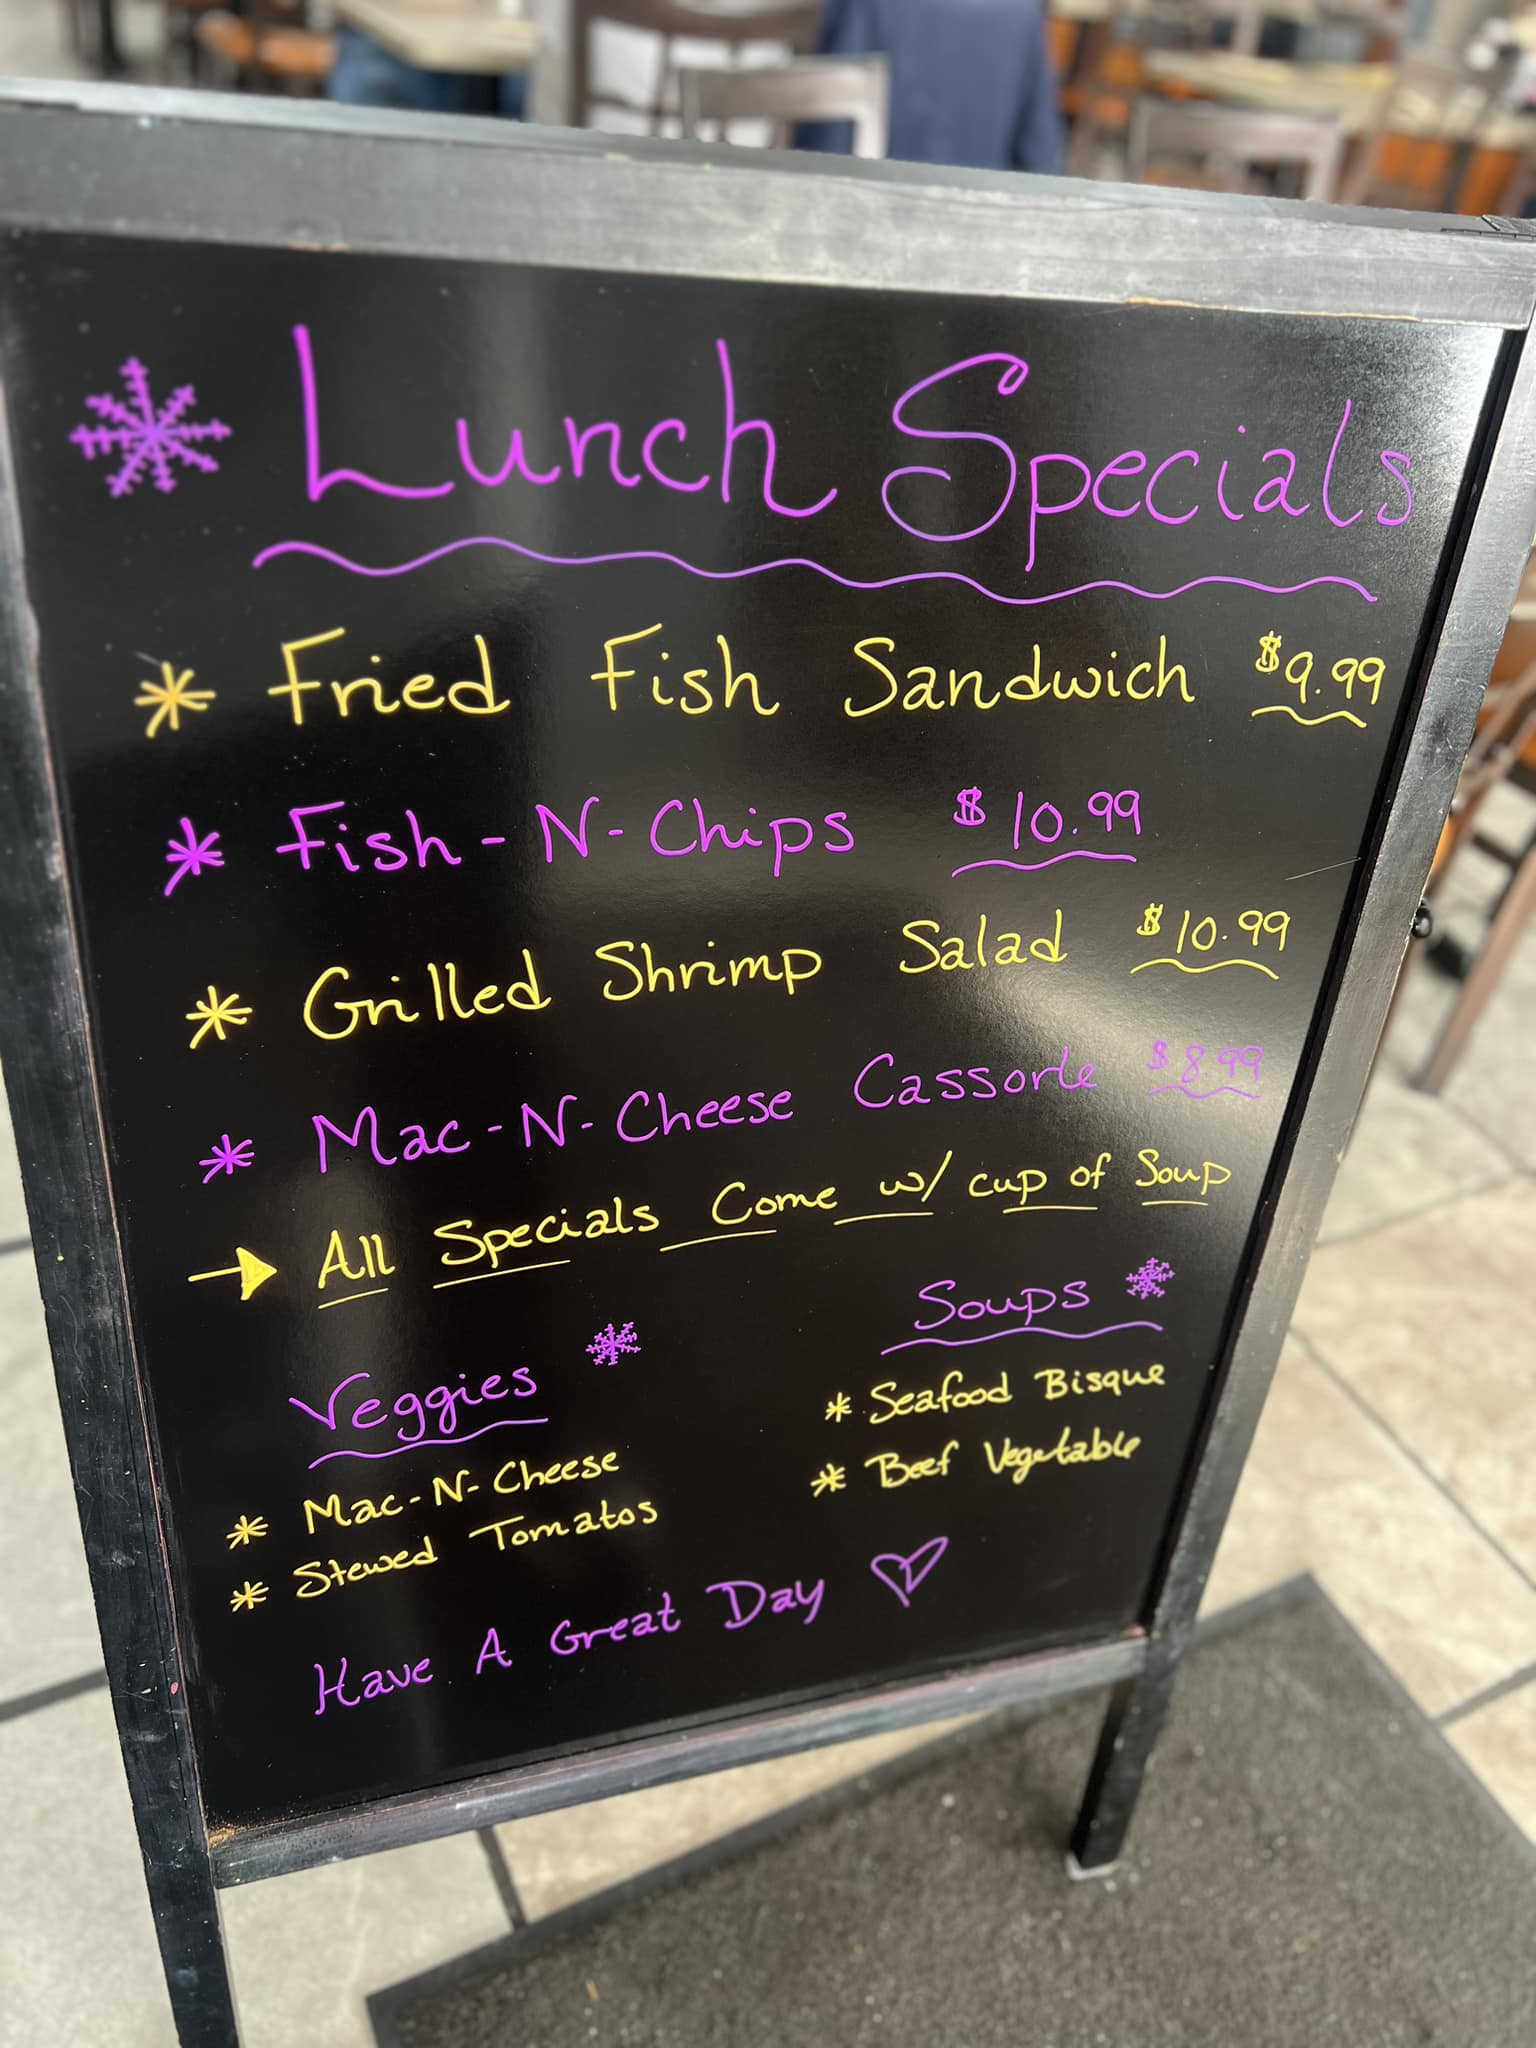 Lunch Specials
* Fried Fish Sandwich $9.99
* Fish-N-Chips $10.99
* Grilled Shrimp Salad $10.99
* Mac-N-Cheese Cassorle $8.99
→ All Specials Come w/ cup of Soup
Veggies
* Mac-N-Cheese
* Stewed Tomatos
Soups
* Seafood Bisque
* Beef Vegetable
Have A Great Day ♡